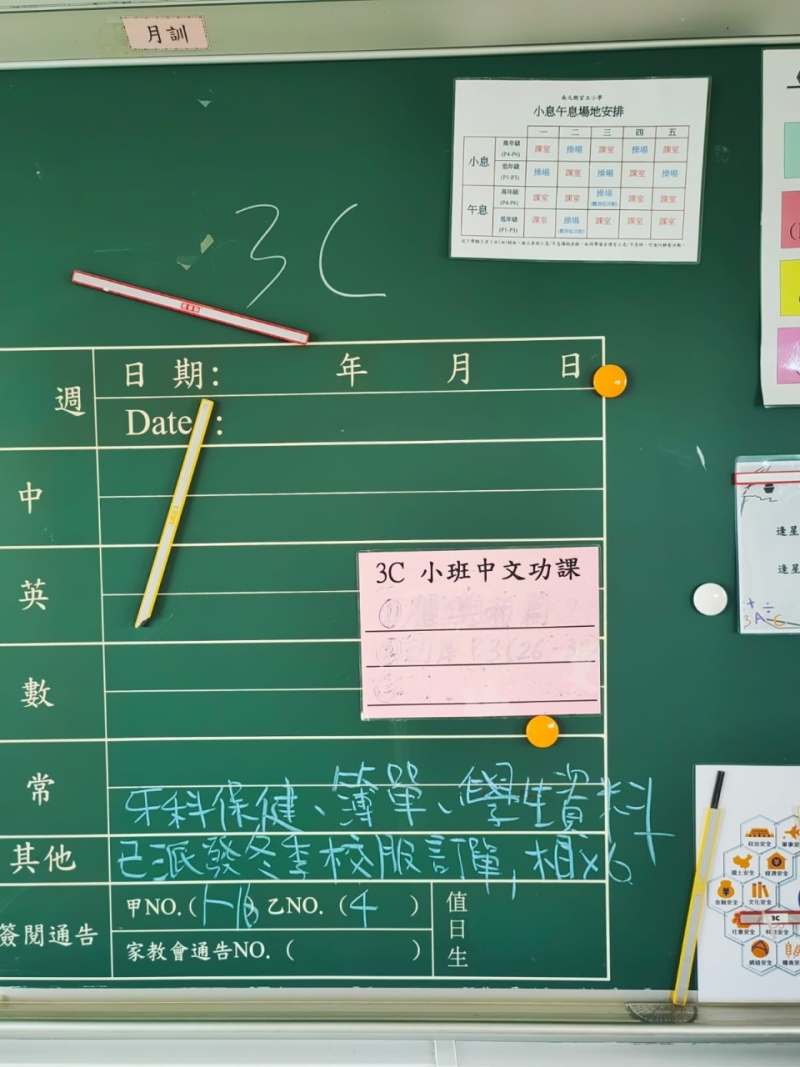 月訓
小息午息場地安排
一 二 三 四 五
小息 高年級 (P4-P6) 課室 操場 課室 操場 課室
低年級 (P1-P3) 操場 課室 操場 課室 操場
午息 高年級 (P4-P6) 課室 課室 操場 課室 課室
低年級 (P1-P3) 課室 操場 課室 課室 課室
3C
週 日期: 年 月 日
Date :
中
英
3C 小班中文功課
數
常
牙科保健、簿單、學生資料
其他 已派發冬季校服訂單,相x6
簽閱通告 甲NO.( ) 乙NO.(4)
家教會通告NO.( )
值日生
逢星
逢星
政治安全
國土安全 經濟安全
金融安全 文化安全
社會安全
3C
網絡安全 糧食安全